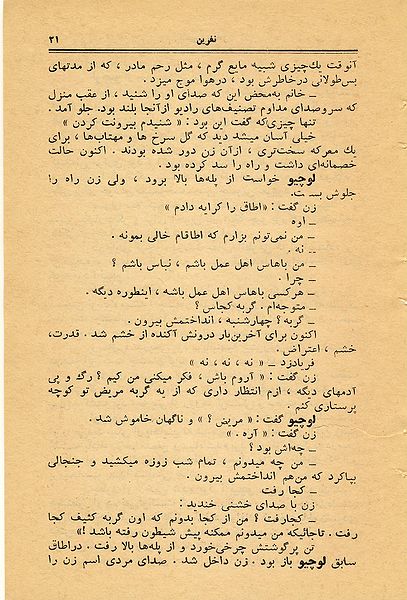 نفرین ۳۱
آنوقت یك‌چیزی شبیه مایع گرم ، مثل رحم مادر ، که از مدتهای
بس‌طولانی درخاطرش بود ، درهوا موج میزد .
ـ خانم به‌محض این که صدای او را شنید ، از عقب منزل
که سروصدای مداوم تصنیف‌های رادیو ازآنجا بلند بود. جلو آمد .
تنها چیزی‌که گفت این بود : « شنیدم بیرونت کردن »
خیلی آسان میشد دید که گل سرخ ها و مهتاب‌ها ، برای
یك معرکه سخت‌تری ، ازآن زن دور شده بودند . اکنون حالت
خصمانه‌ای داشت و راه را سد کرده بود .
لوچیو خواست از پله‌ها بالا برود ، ولی زن راه را
جلوش بست.
زن گفت : «اطاق را کرایه دادم »
ـ اوه
ـ من نمی‌تونم بزارم که اطاقام خالی بمونه .
ـ نه .
ـ من باهاس اهل عمل باشم ، نباس باشم ؟
ـ چرا .
ـ هرکسی باهاس اهل عمل باشه ، اینطوره دیگه .
ـ متوجه‌ام . گربه کجاس ؟
ـ گربه ؟ چهارشنبه ، انداختمش بیرون .
اکنون برای آخرین‌بار درونش آکنده از خشم شد . قدرت،
خشم ، اعتراض .
فریادزد ـ « نه ، نه ، نه »
زن گفت : « آروم باش ، فکر میکنی من کیم ؟ رگ و پی
آدمهای دیگه ، ازم انتظار داری که از یه گربه مریض تو کوچه
پرستاری کنم .
لوچیو گفت : « مریض ؟ » و ناگهان خاموش شد .
زن گفت : « آره . »
ـ چه‌اش بود ؟
ـ من چه میدونم ، تمام شب زوزه میکشید و جنجالی
بپاکرد که من‌هم انداختمش بیرون .
ـ کجا رفت
زن با صدای خشنی خندید :
ـ کجارفت ؟ من از کجا بدونم که اون گربه کثیف کجا
رفت . تاجائیکه من میدونم ممکنه پیش شیطون رفته باشد !»
تن پرگوشتش چرخی‌خورد و از پله‌ها بالا رفت . دراطاق
سابق لوچیو باز بود . زن داخل شد . صدای مردی اسم زن را